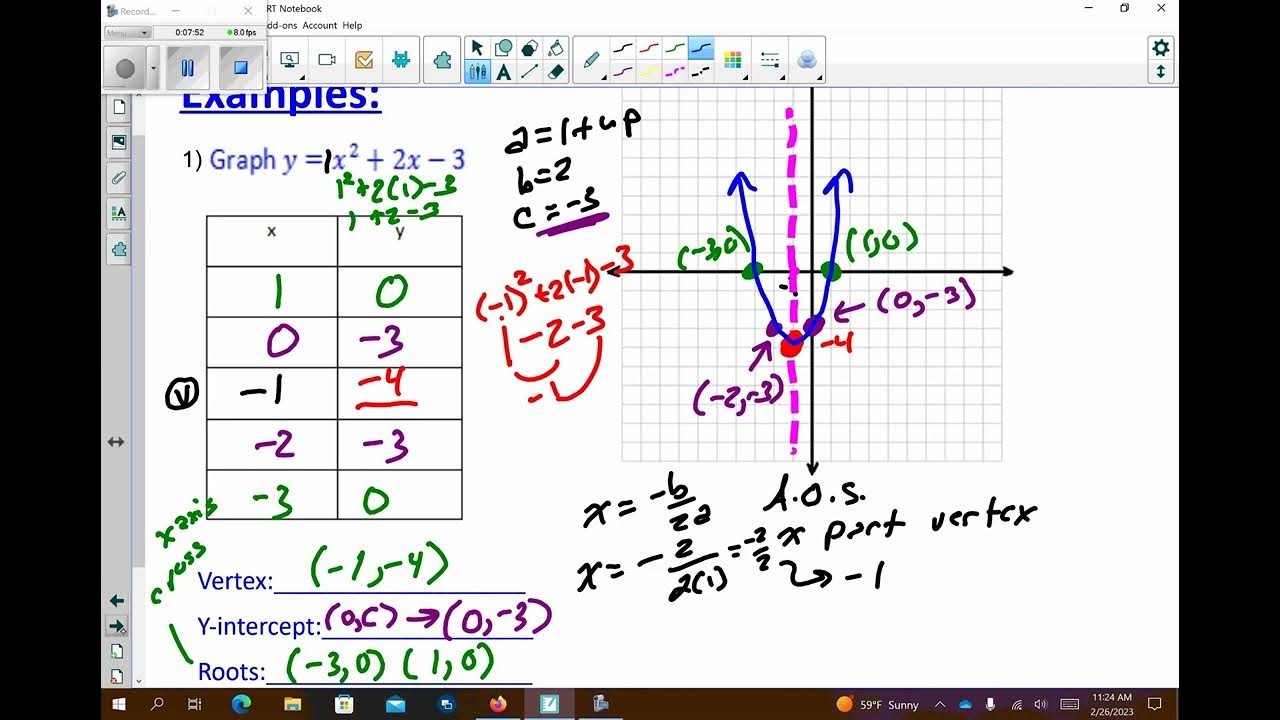 Record...
RT Notebook
Menu
0:07:52
8.0 fps
dd-ons Account Help
Examples:
1) Graph y = 1x² + 2x − 3
1² + 2(1) - 3
1 + 2 - 3
x y
1 0
0 -3
V -1 -4
-2 -3
-3 0
x axis
cross
Vertex: (-1, -4)
Y-intercept: (0, C) → (0, -3)
Roots: (-3, 0) (1, 0)
a = 1 + up
b = 2
c = -3
(-1)² + 2(-1) - 3
1 - 2 - 3
-1
(-3, 0)
(1, 0)
← (0, -3)
-4
(-2, -3)
x = -b/2a A.O.S.
x = -2/2(1) = -2/2 x part vertex
→ -1
59°F Sunny
11:24 AM
2/26/2023